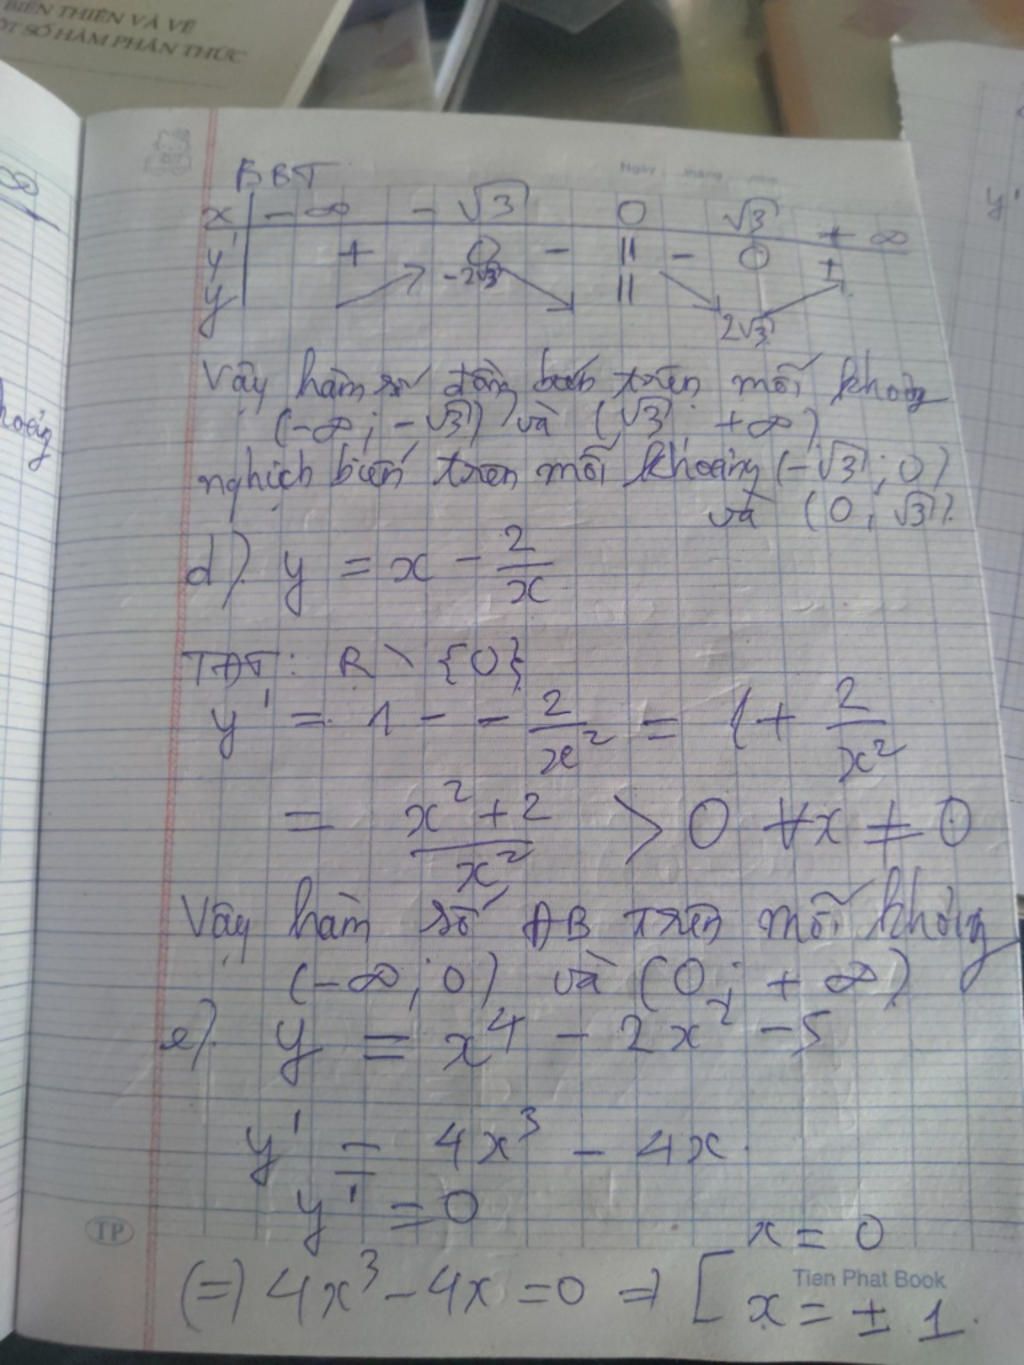 BIẾN THIÊN VÀ VẼ
ỘT SỐ HÀM PHÂN THỨC
Ngày tháng năm
BBT
x -∞ -√3 0 √3 +∞
y' + 0 - || - 0 +
y -2√3 || 2√3
Vậy hàm số đồng biến trên mỗi khoảng
(-∞; -√3) và (√3; +∞)
nghịch biến trên mỗi khoảng (-√3; 0)
và (0; √3).
d) y = x - 2/x
TXĐ: R \ {0}
y' = 1 - - 2/x² = 1 + 2/x²
= x² + 2/x² > 0 ∀x ≠ 0
Vậy hàm số ĐB trên mỗi khoảng
(-∞; 0) và (0; +∞)
e) y = x⁴ - 2x² - 5
y' = 4x³ - 4x.
y' = 0
(=) 4x³ - 4x = 0 => [ x = 0
x = ± 1.
TP
Tien Phat Book
∞
hoảng
y'